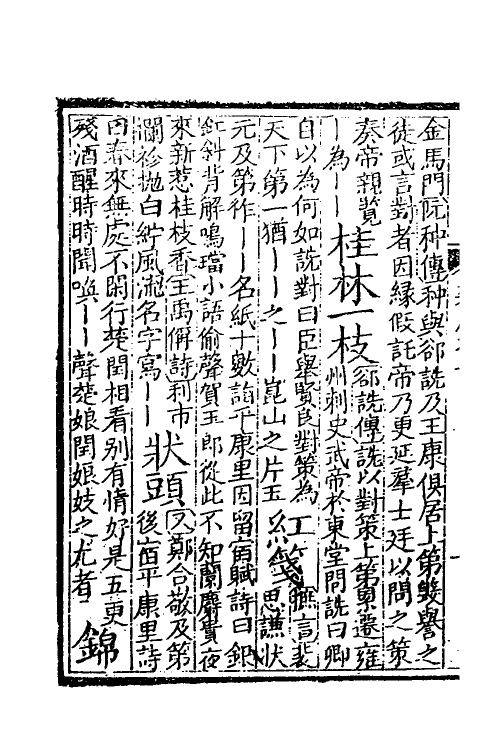 金馬門阮种傳种與郤詵及王康俱居上第毀譽之
徒或言對者因緣假託帝乃更延羣士廷以問之策
奏帝親覽
丨為丨丨桂林一枝郤詵傳詵以對策上第累遷雍
州刺史武帝於東堂問詵曰卿
自以為何如詵對曰臣舉賢良對策為
天下第一猶丨丨之丨丨崑山之片玉紅箋摭言裴
思謙狀
元及第作丨丨名紙十數詣平康里因留宿賦詩曰銀
釭斜背解鳴璫小語偷聲賀玉郎從此不知蘭麝貴夜
來新惹桂枝香王禹偁詩利市
襴衫拋白紵風流名字寫丨丨狀頭又鄭合敬及第
後宿平康里詩
曰春來無處不閑行楚閏相看别有情好是五更
殘酒醒時時聞喚丨丨聲楚娘閏娘妓之尤者錦